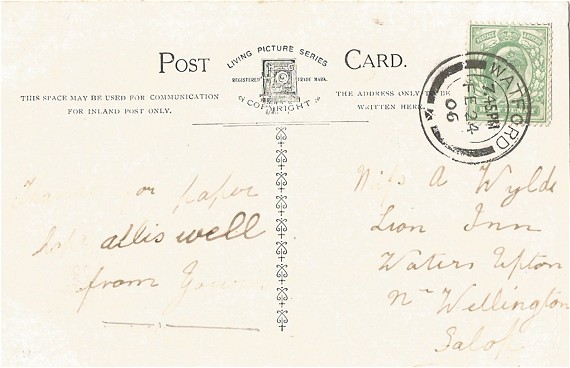 POST CARD.
LIVING PICTURE SERIES
REGISTERED TRADE MARK.
COPYRIGHT
THIS SPACE MAY BE USED FOR COMMUNICATION
FOR INLAND POST ONLY.
THE ADDRESS ONLY TO BE
WRITTEN HERE
WATFORD
7.45PM
FE 24
06
or paper
all is well
from
Miss A Wylde
Lion Inn
Waters Upton
Nr Wellington
Salop